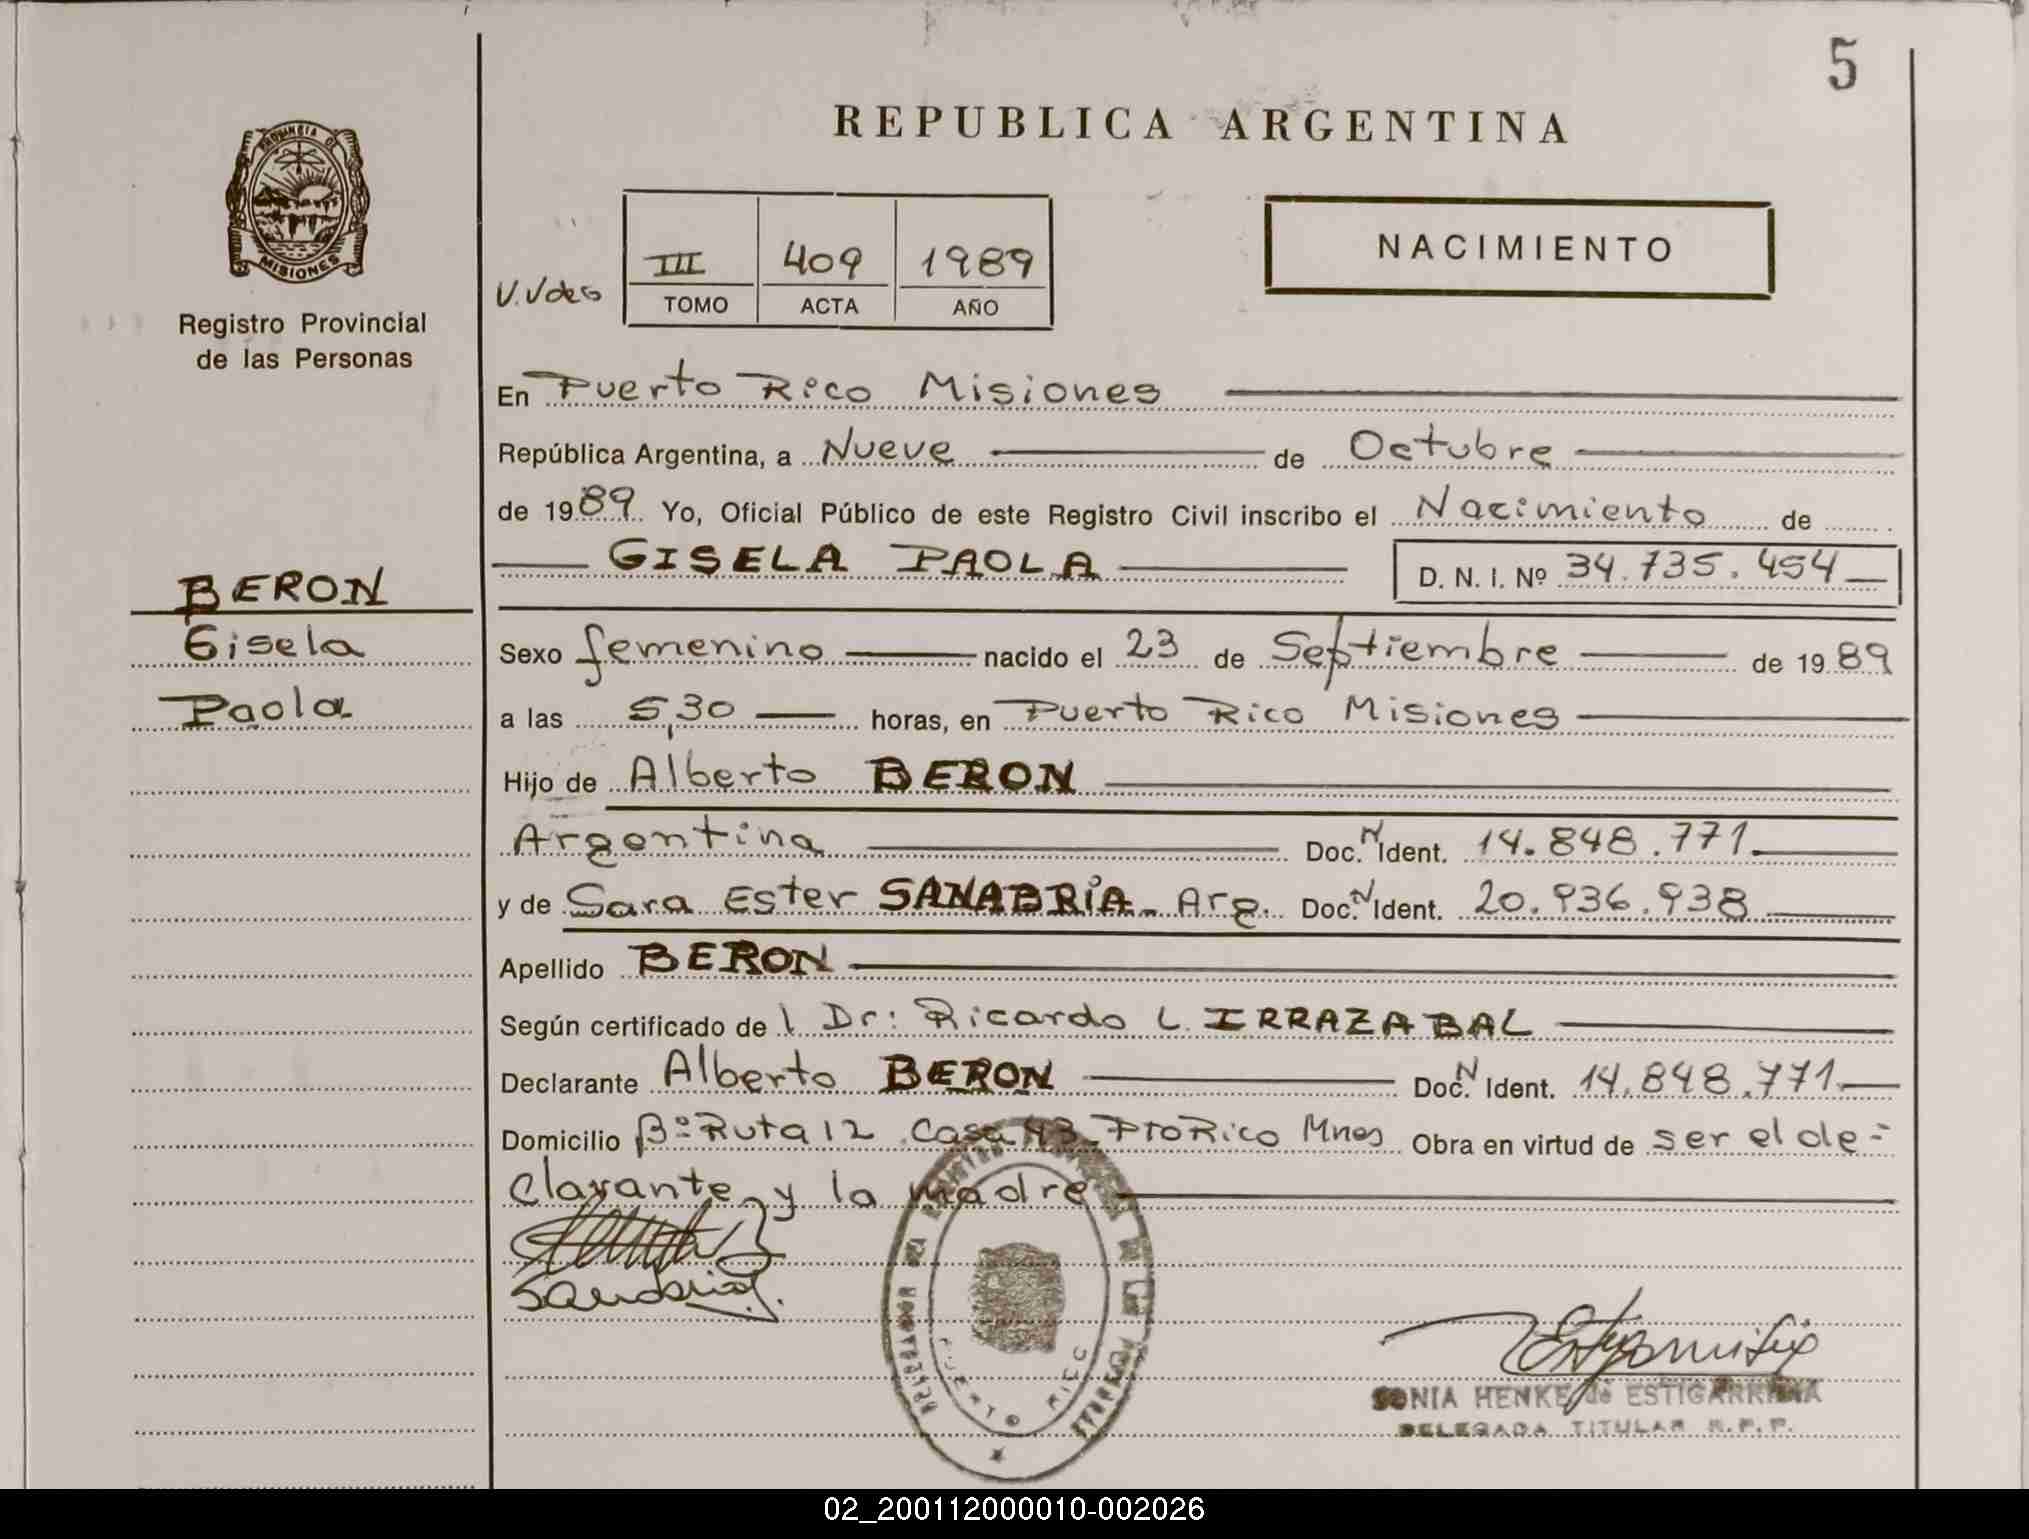 5
REPUBLICA ARGENTINA
PROVINCIA DE
MISIONES
Registro Provincial
de las Personas
III 409 1989
TOMO ACTA AÑO
NACIMIENTO
En Puerto Rico Misiones
República Argentina, a Nueve de Octubre
de 1989 Yo, Oficial Público de este Registro Civil inscribo el Nacimiento de
GISELA PAOLA D. N. I. Nº 34.735.454
BERON
Gisela
Paola
Sexo femenino nacido el 23 de Septiembre de 1989
a las 5,30 horas, en Puerto Rico Misiones
Hijo de Alberto BERON
Argentina Doc. N Ident. 14.848.771.
y de Sara Ester SANABRIA - Arg. Doc. N Ident. 20.936.938
Apellido BERON
Según certificado de l Dr: Ricardo L. IRRAZABAL
Declarante Alberto BERON Doc. N Ident. 14.848.771.
Domicilio Bº Ruta 12 Casa 43 - Pto Rico Mnes Obra en virtud de ser el de-
clarante y la madre
PUERTO RICO
SONIA HENKE de ESTIGARRIBIA
DELEGADA TITULAR R.P.P.
02_200112000010-002026